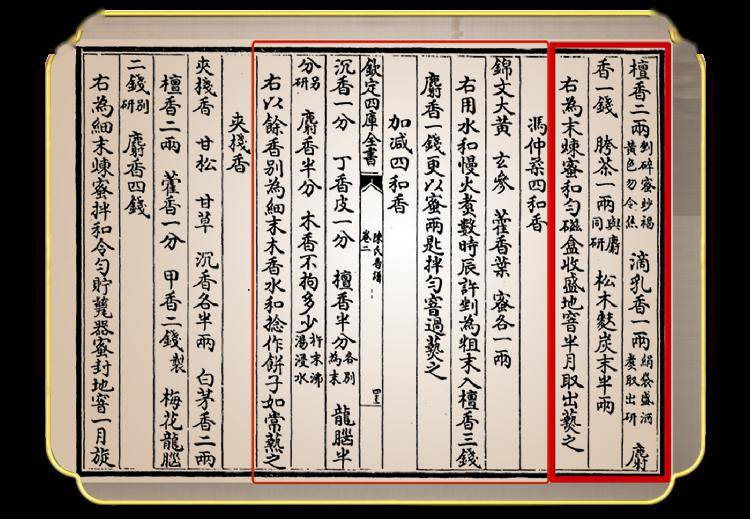 檀香二兩剉碎蜜炒褐黃色勿令焦 滴乳香一兩絹袋盛酒煮取出研 麝
香一錢 胯茶一兩與麝同研 松木麩炭末半兩
右為末煉蜜和勻磁盒收盛地窨半月取出爇之
馮仲柔四和香
錦文大黃 玄參 藿香葉 蜜各一兩
右用水和慢火煮數時辰許剉為粗末入檀香三錢
麝香一錢更以蜜兩匙拌勻窨過爇之
加減四和香
欽定四庫全書
陳氏香譜
卷二
沉香一分 丁香皮一分 檀香半分各別為末 龍腦半
分另研 麝香半分 木香不拘多少杵末沸湯浸水
右以餘香別為細末木香水和捻作餅子如常爇之
夾棧香
夾棧香 甘松 甘草 沉香各半兩 白茅香二兩
檀香二兩 藿香一分 甲香二錢製 梅花龍腦
二錢別研 麝香四錢
右為細末煉蜜拌和令勻貯甆器蜜封地窨一月旋